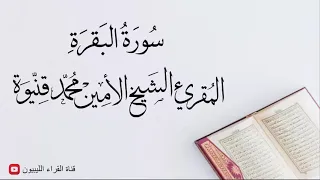 سُورَةُ البَقَرَةِ
المُقرِئ الشَّيخ الأَمِين مُحمَّد قِنِّيوَة
قناة القراء الليبيون